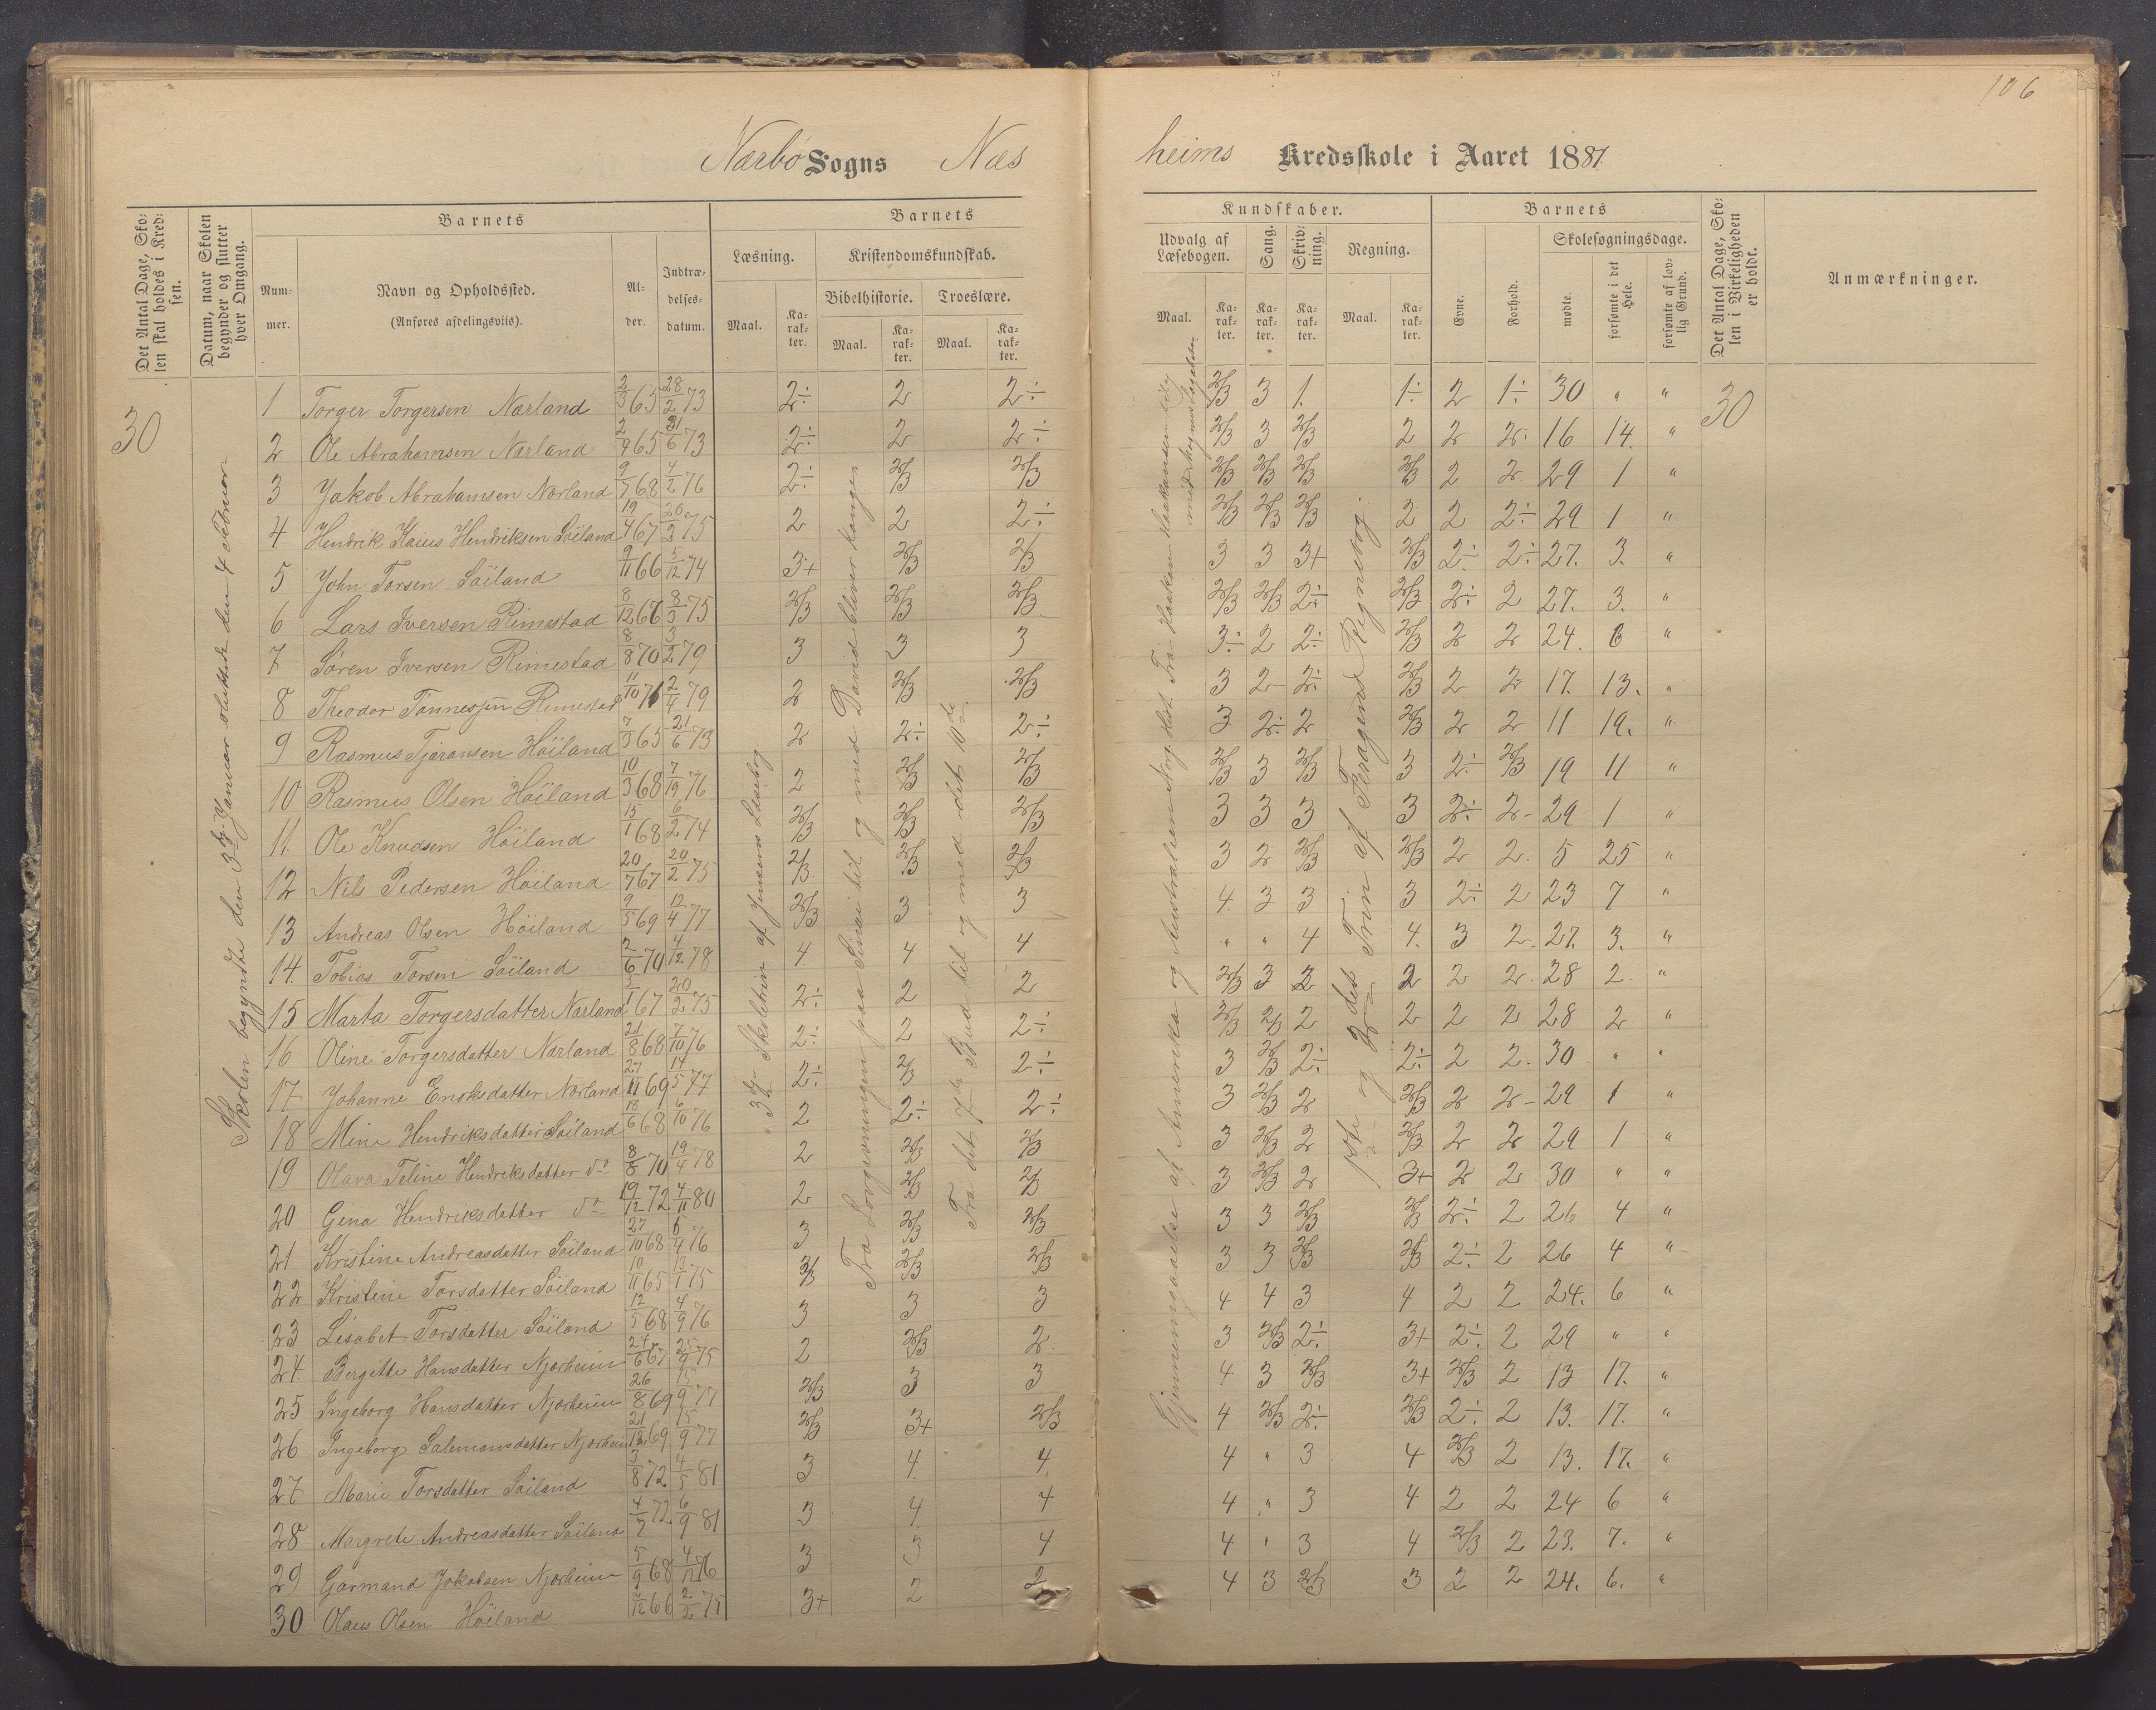 106
Nærbø Sogns Næs
heims Kredsskole i Aaret 1881.
Det Antal Dage, Sko-
len skal holdes i Kred-
sen.
Datum, naar Skolen
begynder og slutter
hver Omgang.
Barnets
Num-
mer.
Navn og Opholdssted.
(Anføres afdelingsviis).
Al-
der.
Indtræ-
delses-
datum.
Barnets
Læsning.
Maal.
Ka-
rak-
ter.
Kristendomskundskab.
Bibelhistorie.
Maal.
Ka-
rak-
ter.
Troeslære.
Maal.
Ka-
rak-
ter.
Kundskaber.
Udvalg af
Læsebogen.
Maal.
Ka-
rak-
ter.
Sang.
Ka-
rak-
ter.
Skriv-
ning.
Ka-
rak-
ter.
Regning.
Maal.
Ka-
rak-
ter.
Barnets
Evne.
Forhold.
Skolesøgningsdage.
mødte.
forsømte i det
Hele.
forsømte af lov-
lig Grund.
Det Antal Dage, Sko-
len i Virkeligheden
er holdt.
Anmærkninger.
30
Skolen begyndte den 3die Januar sluttede den 4 Februar
3die Skoletrin af Jensens Læsebog.
Fra Lovgivningen paa Sinai til og med David bliver konge
Fra det 7de Bud til og med det 10de
Gjennemgaaelse af Amerika og Australien
1ste og 2det Trin af Regnebog.
30
1 Torger Torgersen Nærland 2/3 65 28/2 73 2÷ 2 2÷ 2/3 3 1. 1÷ 2 1÷ 30 " "
2 Ole Abrahamsen Nærland 2/9 65 21/6 73 2÷ 2 2÷ 2/3 3 2/3 2 2 2 16 14. "
3 Jakob Abrahamsen Nærland 9/7 68 4/2 76 2÷ 2/3 2/3 2/3 2/3 2/3 2/3 2 2 29 1 "
4 Hendrik Kaius Hendriksen Söiland 19/4 67 20/2 75 2 2 2÷ 2/3 2/3 2/3 2 2 2÷ 29 1 "
5 John Torsen Söiland 9/11 66 5/12 74 3+ 2/3 2/3 3 3 3+ 2/3 2÷ 2÷ 27. 3. "
6 Lars Iversen Rimestad 8/12 66 8/3 75 2/3 2/3 2/3 2/3 2/3 2÷ 2/3 2÷ 2 27. 3. "
7 Sören Iversen Rimestad 8/8 70 3/2 79 3 3 3 3÷ 2 2÷ 2/3 2 2 24. 6 "
8 Theodor Tönnessen Rimestad 11/10 71 2/4 79 2 2/3 2/3 3 2 2÷ 2/3 2 2 17. 13. "
9 Rasmus Tjäransen Höiland 7/3 65 21/6 73 2 2÷ 2÷ 3 2÷ 2 2/3 2 2 11 19. "
10 Rasmus Olsen Höiland 10/3 68 7/19 76 2 2/3 2/3 2/3 3 2/3 3 2÷ 2/3 19 11 "
11 Ole Knudsen Höiland 15/1 68 6/2 74 2/3 2/3 2/3 3 3 3 3 2÷ 2 29 1 "
12 Nils Pedersen Höiland 20/7 67 20/2 75 2/3 2/3 2/3 3 2 2/3 2/3 2 2. 5 25 "
13 Andreas Olsen Höiland 9/5 69 12/4 77 2/3 3 3 4. 3 3 3 2÷ 2 23 7 "
14. Tobias Torsen Söiland 2/6 70 4/12 78 4 4 4 " " 4 4. 3 2. 27. 3. "
15 Marta Torgersdatter Nærland 5/1 67 20/2 75 2÷ 2 2 2/3 3 2 2 2 2 28 2. "
16 Oline Torgersdatter Nærland 21/8 68 7/10 76 2÷ 2 2÷ 2/3 2/3 2 2 2 2 28 2 "
17 Johanne Enoksdatter Nærland 27/11 69 14/5 77 2÷ 2/3 2÷ 3 2/3 2÷ 2÷ 2 2. 30 " "
18 Mine Hendriksdatter Söiland 18/6 68 6/10 76 2 2÷ 2÷ 3 2/3 2 2/3 2 2 29 1 "
19 Olava Teline Hendriksdatter do 8/8 70 19/4 78 2 2/3 2/3 3 2/3 2 2/3 2 2 29 1 "
20 Gina Hendriksdatter do 19/12 72 4/11 80 2 2/3 2/3 3 2/3 2 3+ 2 2 30 " "
21 Kristine Andreasdatter Söiland 27/10 68 6/4 76 3 2/3 2/3 3 3 2/3 2/3 2÷ 2 26 4 "
22 Kristine Torsdatter Söiland 10/11 65 13/1 75 2/3 2/3 2/3 3 3 2/3 2/3 2÷ 2 26 4 "
23 Lisabet Torsdatter Söiland 12/5 68 4/9 76 3 3 3 4 4 3 4 2 2 24. 6 "
24 Bergitte Hansdatter Njærheim 24/6 67 25/9 75 2 2/3 2. 3 2/3 2÷ 3+ 2÷ 2 29 " "
25 Ingeborg Hansdatter Njærheim 26/8 69 15/9 77 2/3 3 3 4 3 2/3 3+ 2/3 2 13 17. "
26 Ingeborg Salemonsdatter Njærheim 21/12 69 15/9 77 2/3 3+ 2/3 4 2/3 2÷ 2/3 2÷ 2 13. 17. "
27 Marie Torsdatter Söiland 3/8 72 4/5 81 3 4. 4. 4 " 3 4 2/3 2 13. 17. "
28 Margrete Andreasdatter Söiland 4/7 72 6/9 81 3 4. 4 4 " 3 4 2 2 24 6 "
29 Garmand Jakobsen Njærheim 5/9 68 4/12 76 3 3 4 4 " 3 4 2/3 2 23. 7. "
30 Olaus Olsen Höiland 2/12 66 2/2 77 3+ 2 2 4 3 2/3 3 2 2 24. 6. "